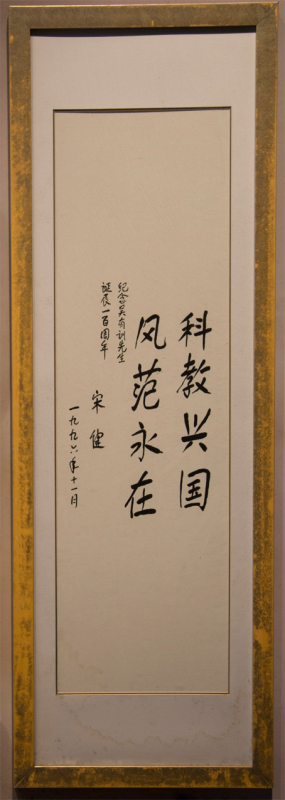 科教兴国
风范永在
纪念吴有训先生
诞辰一百周年
宋健
一九九六年十一月